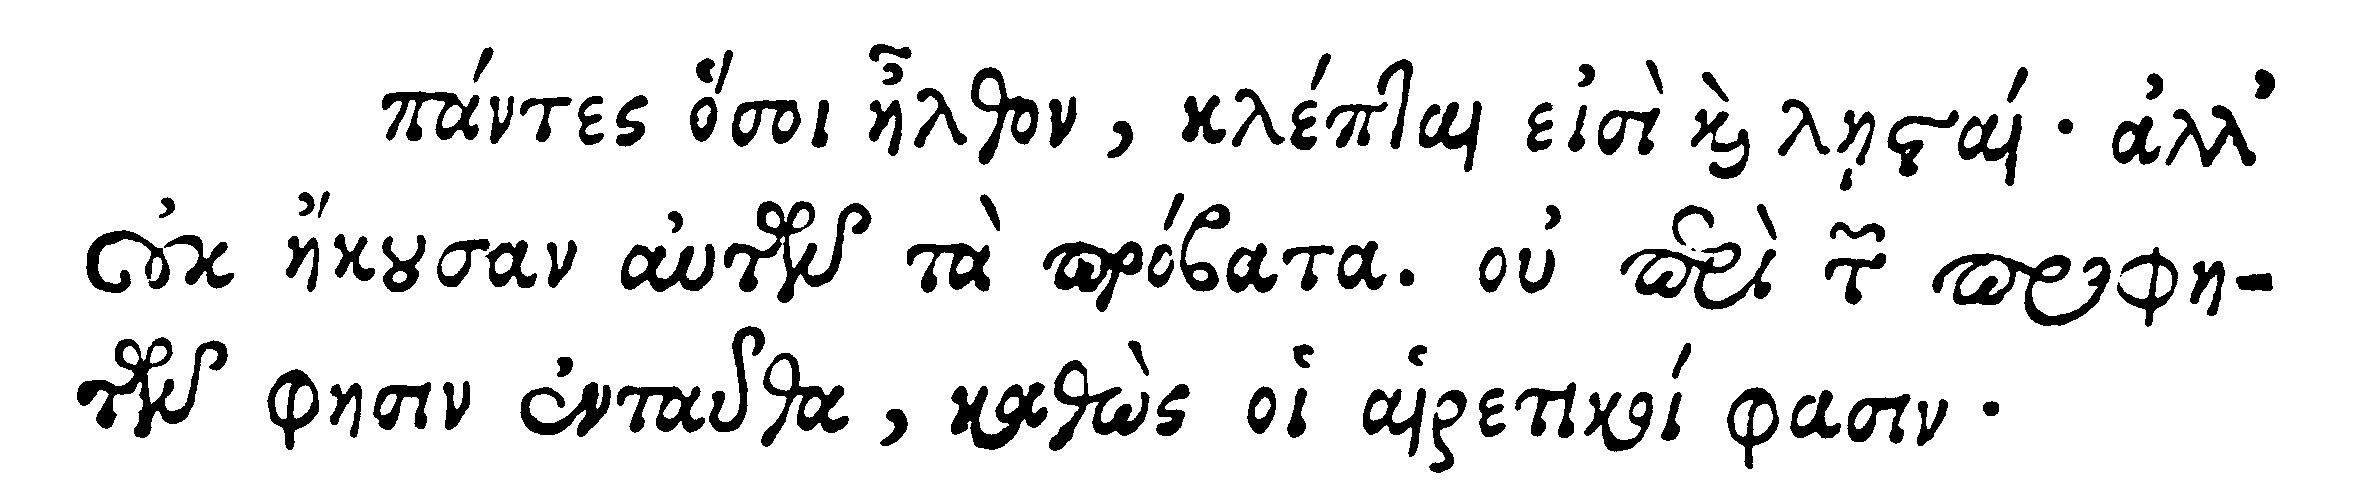 πάντες ὅσοι ἦλθον, κλέπται εἰσὶ ϗ λῃσταί· ἀλλ’
οὐκ ἤκουσαν αὐτῶν τὰ πρόβατα. οὐ περὶ τῶν προφη-
τῶν φησιν ἐνταῦθα, καθὼς οἱ αἱρετικοί φασιν·